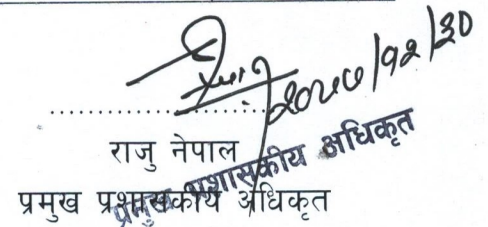 २०७७/१२/३०
राजु नेपाल
प्रमुख प्रशासकीय अधिकृत
प्रमुख प्रशासकीय अधिकृत